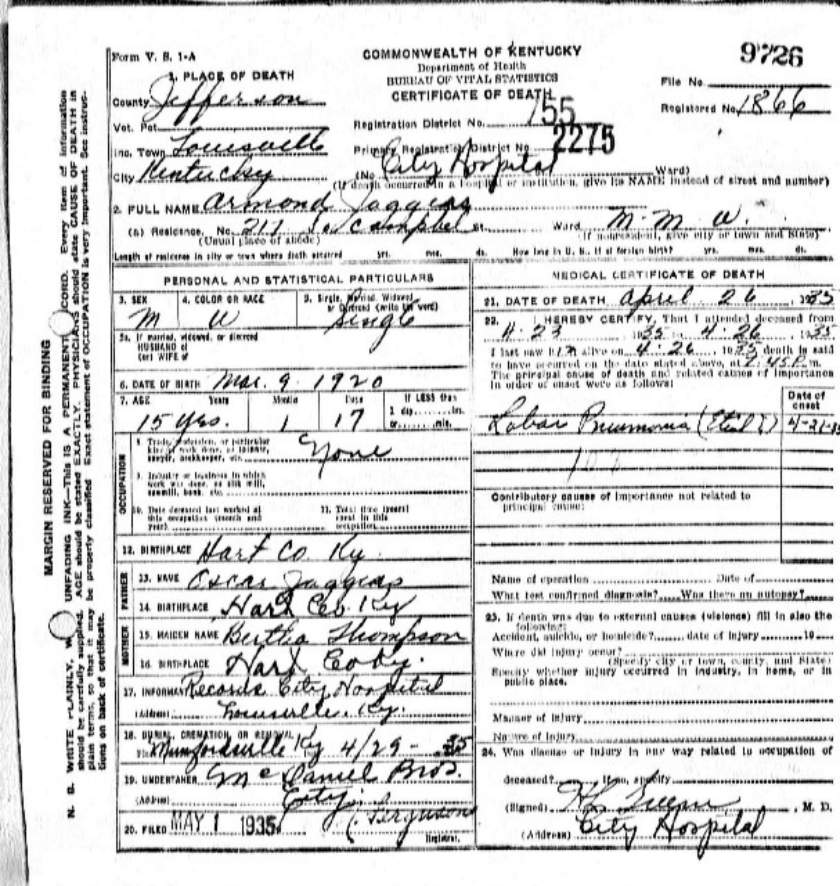 MARGIN RESERVED FOR BINDING
N. B. WRITE PLAINLY, W UNFADING INK—This IS A PERMANENT CORD. Every item of information
should be carefully supplied. AGE should be stated EXACTLY. PHYSICIANS should state CAUSE OF DEATH in
plain terms, so that it may be properly classified. Exact statement of OCCUPATION is very important. See instruc-
tions on back of certificate.
Form V. S. 1-A
COMMONWEALTH OF KENTUCKY
Department of Health
BUREAU OF VITAL STATISTICS
CERTIFICATE OF DEATH
9726
File No
Registered No 1866
1. PLACE OF DEATH
County Jefferson
Vot. Pct
Inc. Town Louisville
City Kentucky
Registration District No. 155
Primary Registration District No. 2275
(No City Hospital Ward)
(If death occurred in a hospital or institution, give its NAME instead of street and number)
2. FULL NAME Armond Jaggins
(a) Residence. No. 211 So. Campbel St. Ward
(Usual place of abode)
(If nonresident, give city or town and State)
Length of residence in city or town where death occurred yrs. mos. ds. How long in U. S., if of foreign birth? yrs. mos. ds.
PERSONAL AND STATISTICAL PARTICULARS
3. SEX M
4. COLOR OR RACE W
5. Single, Married, Widowed or Divorced (write the word) Single
5a. If married, widowed, or divorced
HUSBAND of
(or) WIFE of
6. DATE OF BIRTH Mar. 9. 1920
7. AGE Years Months Days If LESS than
15 yrs. 1 17 1 day hrs.
or min.
OCCUPATION
8. Trade, profession, or particular
kind of work done, as spinner,
sawyer, bookkeeper, etc. None
9. Industry or business in which
work was done, as silk mill,
sawmill, bank, etc.
10. Date deceased last worked at
this occupation (month and
year)
11. Total time (years)
spent in this
occupation
12. BIRTHPLACE Hart Co. Ky.
FATHER
13. NAME Oscar Jaggins
14. BIRTHPLACE Hart Co Ky
MOTHER
15. MAIDEN NAME Bertha Thompson
16. BIRTHPLACE Hart Co Ky.
17. INFORMANT Records City Hospital
(Address) Louisville. Ky.
18. BURIAL, CREMATION, OR REMOVAL
Munfordsville Ky 4/29-35
19. UNDERTAKER McDaniel Bros.
(Address) City
20. FILED MAY 1 1935 Ferguson
Registrar.
MEDICAL CERTIFICATE OF DEATH
21. DATE OF DEATH April 26, 1935
22. I HEREBY CERTIFY, That I attended deceased from
4-23 1935 to 4-26, 1935
I last saw him alive on 4-26, 1935 death is said
to have occurred on the date stated above, at 45 P. m.
The principal cause of death and related causes of importance
in order of onset were as follows:
Date of
onset
Lobar Pneumonia 4-21-35
Contributory causes of importance not related to
principal cause:
Name of operation Date of
What test confirmed diagnosis? Was there an autopsy?
23. If death was due to external causes (violence) fill in also the
following:
Accident, suicide, or homicide? date of injury 19
Where did injury occur?
(Specify city or town, county, and State)
Specify whether injury occurred in industry, in home, or in
public place.
Manner of injury
Nature of injury
24. Was disease or injury in any way related to occupation of
deceased? If so, specify
(Signed) M. D.
(Address) City Hospital